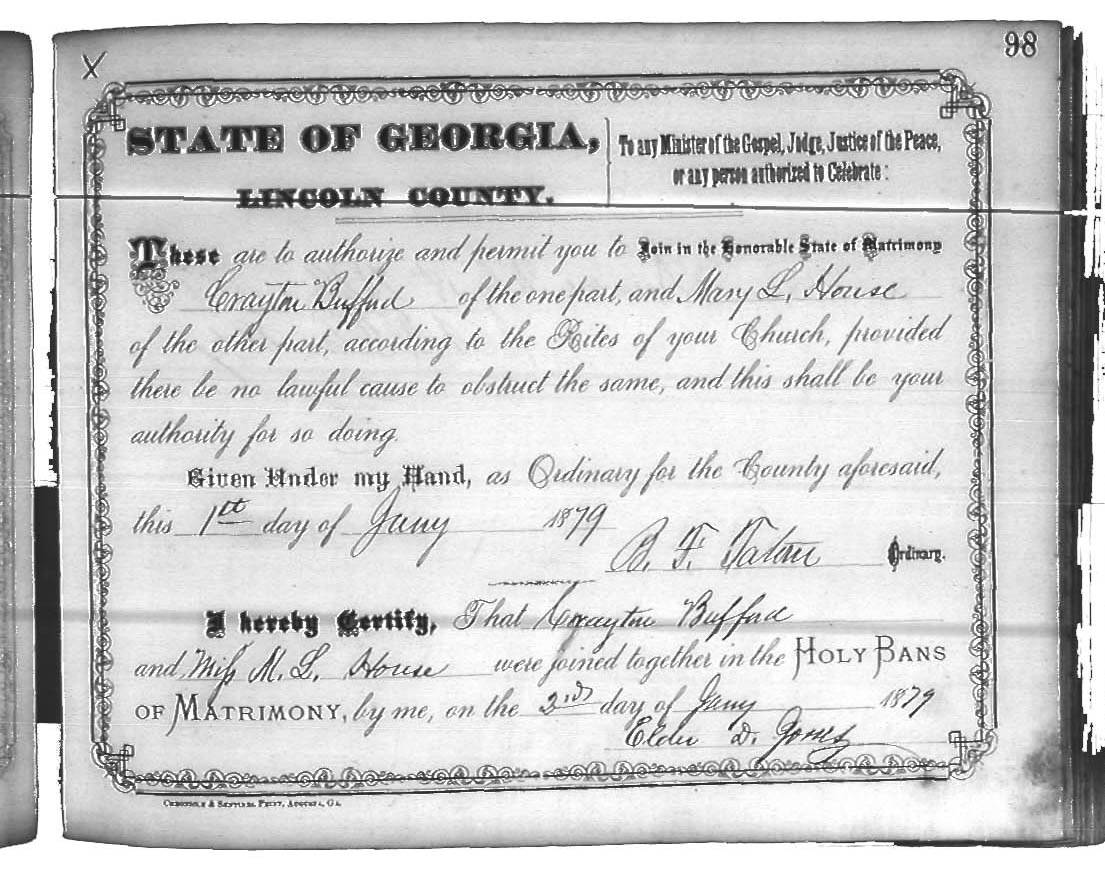 X
98
STATE OF GEORGIA,
LINCOLN COUNTY.
To any Minister of the Gospel, Judge, Justice of the Peace,
or any person authorized to Celebrate:
These are to authorize and permit you to Join in the Honorable State of Matrimony
Crayton Bufford of the one part, and Mary L. House
of the other part, according to the Rites of your Church, provided
there be no lawful cause to obstruct the same, and this shall be your
authority for so doing.
Given Under my Hand, as Ordinary for the County aforesaid,
this 1st day of Jany 1879
B. F. Tatom Ordinary.
I hereby Certify, That Crayton Bufford
and Miss M. L. House were joined together in the HOLY BANS
OF MATRIMONY, by me, on the day of Jany 1879
Elder D. Jones
CHRONICLE & SENTINEL PRINT, AUGUSTA, GA.